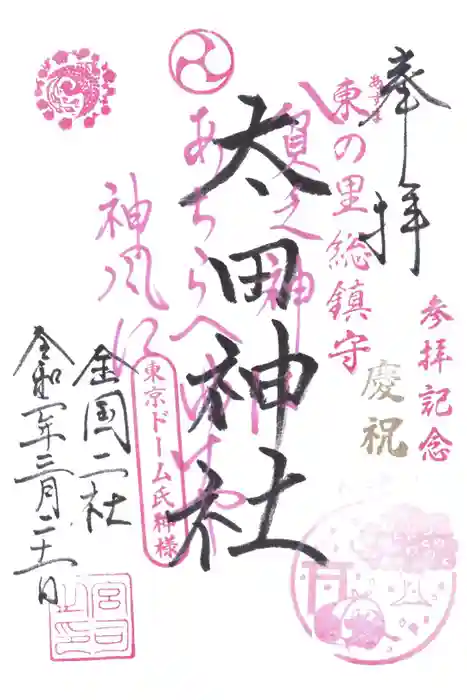 奉拝
あずま
東の里総鎮守
参拝記念
慶祝
太田神社
貧乏神
あちらへ
神風に
東京ドーム氏神様
全国二社
令和二年三月二十一日
宮司之印